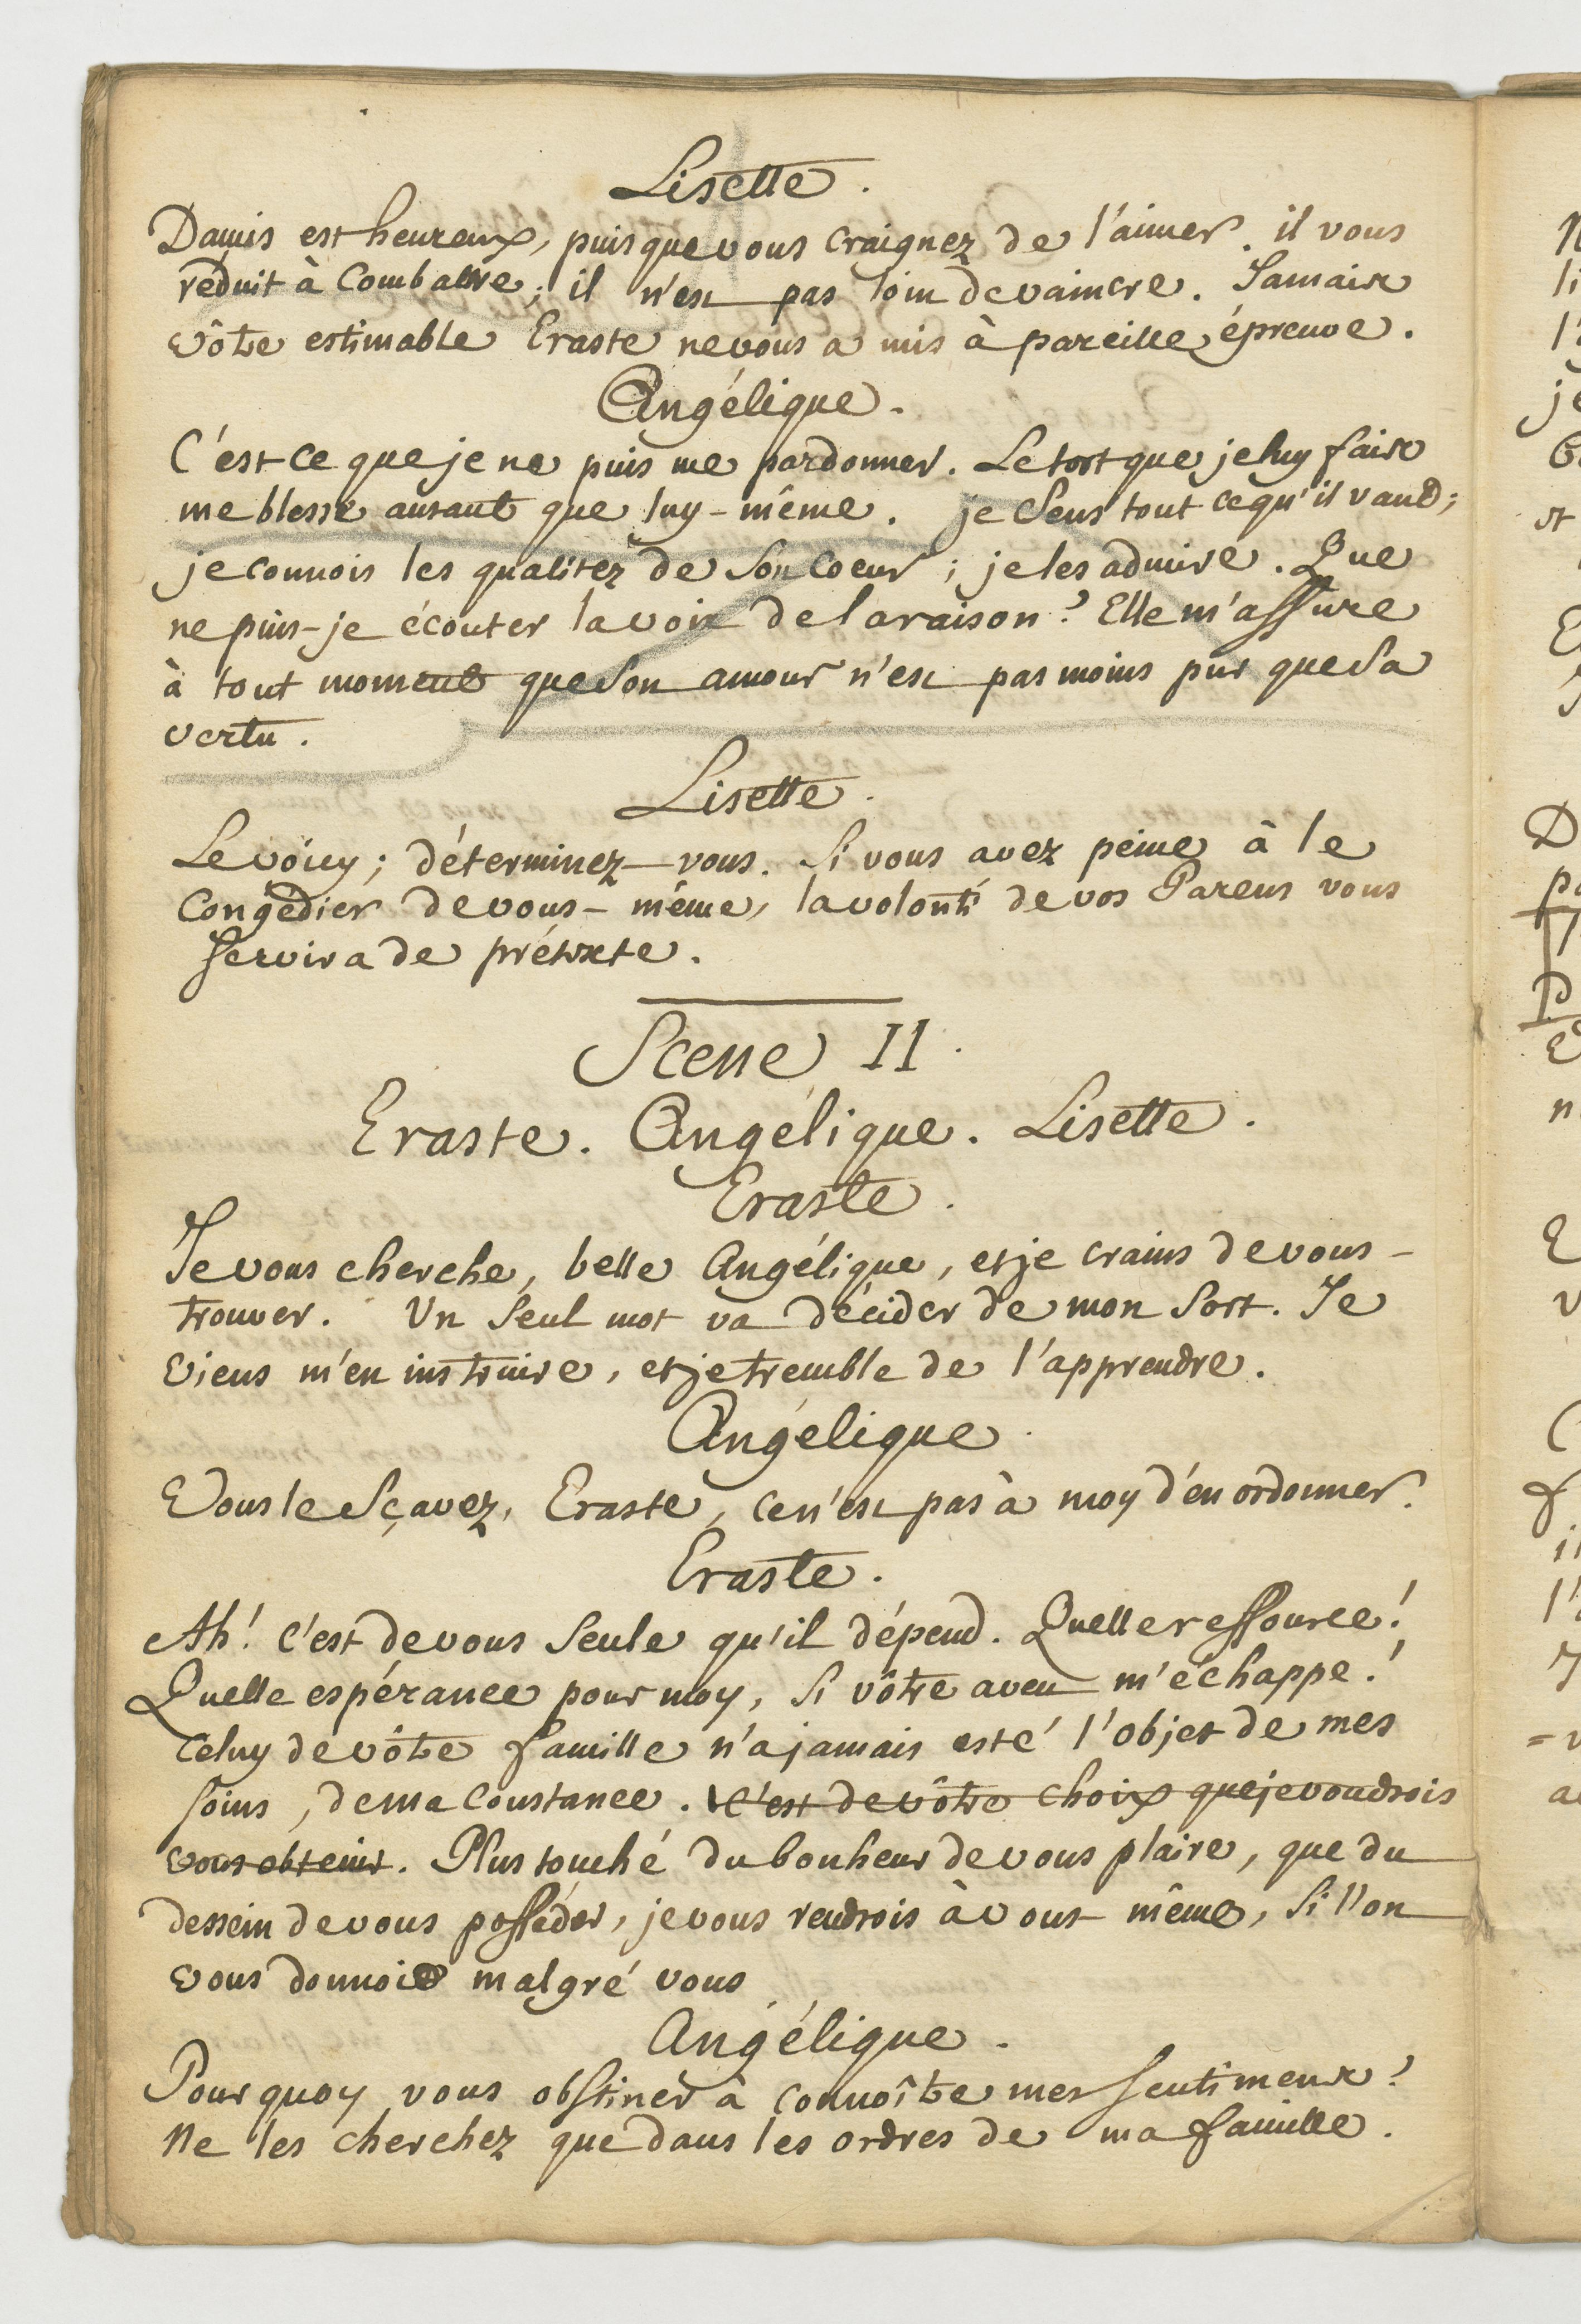 Lisette.
Damis est heureux, puisque vous craignez de l'aimer. il vous
reduit à Combattre; il n'est pas loin de vaincre. Jamais
vôtre estimable Eraste ne vous a mis à pareille épreuve.
Angélique.
C'est ce que je ne puis me pardonner. Le tort que je luy fais
me blesse autant que luy-même. je sens tout ce qu'il vaud;
je connois les qualitez de son coeur; je les admire. Que
ne puis-je écouter la voix de la raison? Elle m'assure
à tout moment que son amour n'est pas moins pur que sa
vertu.
Lisette.
Le voicy; déterminez-vous. Si vous avez peine à le
Congédier de vous-même, la volonté de vos Parens vous
servira de prétexte.
Scene II.
Eraste. Angélique. Lisette.
Eraste.
Je vous cherche, belle Angélique, et je crains de vous-
trouver. Un seul mot va décider de mon sort. Je
viens m'en instruire, et je tremble de l'apprendre.
Angélique.
Vous le sçavez, Eraste, ce n'est pas à moy d'en ordonner.
Eraste.
Ah! c'est de vous seule qu'il dépend. Quelle ressource!
Quelle espérance pour moy, si vôtre aveu m'échappe!
Celuy de vôtre famille n'a jamais esté l'objet de mes
soins, de ma Constance. C'est de vôtre choix que je voudrois
vous obtenir. Plus touché du bonheur de vous plaire, que du
dessein de vous posséder, je vous rendrois à vous même, si l'on
vous donnoit malgré vous
Angélique.
Pourquoy vous obstiner à connoître mes sentimens?
Ne les cherchez que dans les ordres de ma famille.